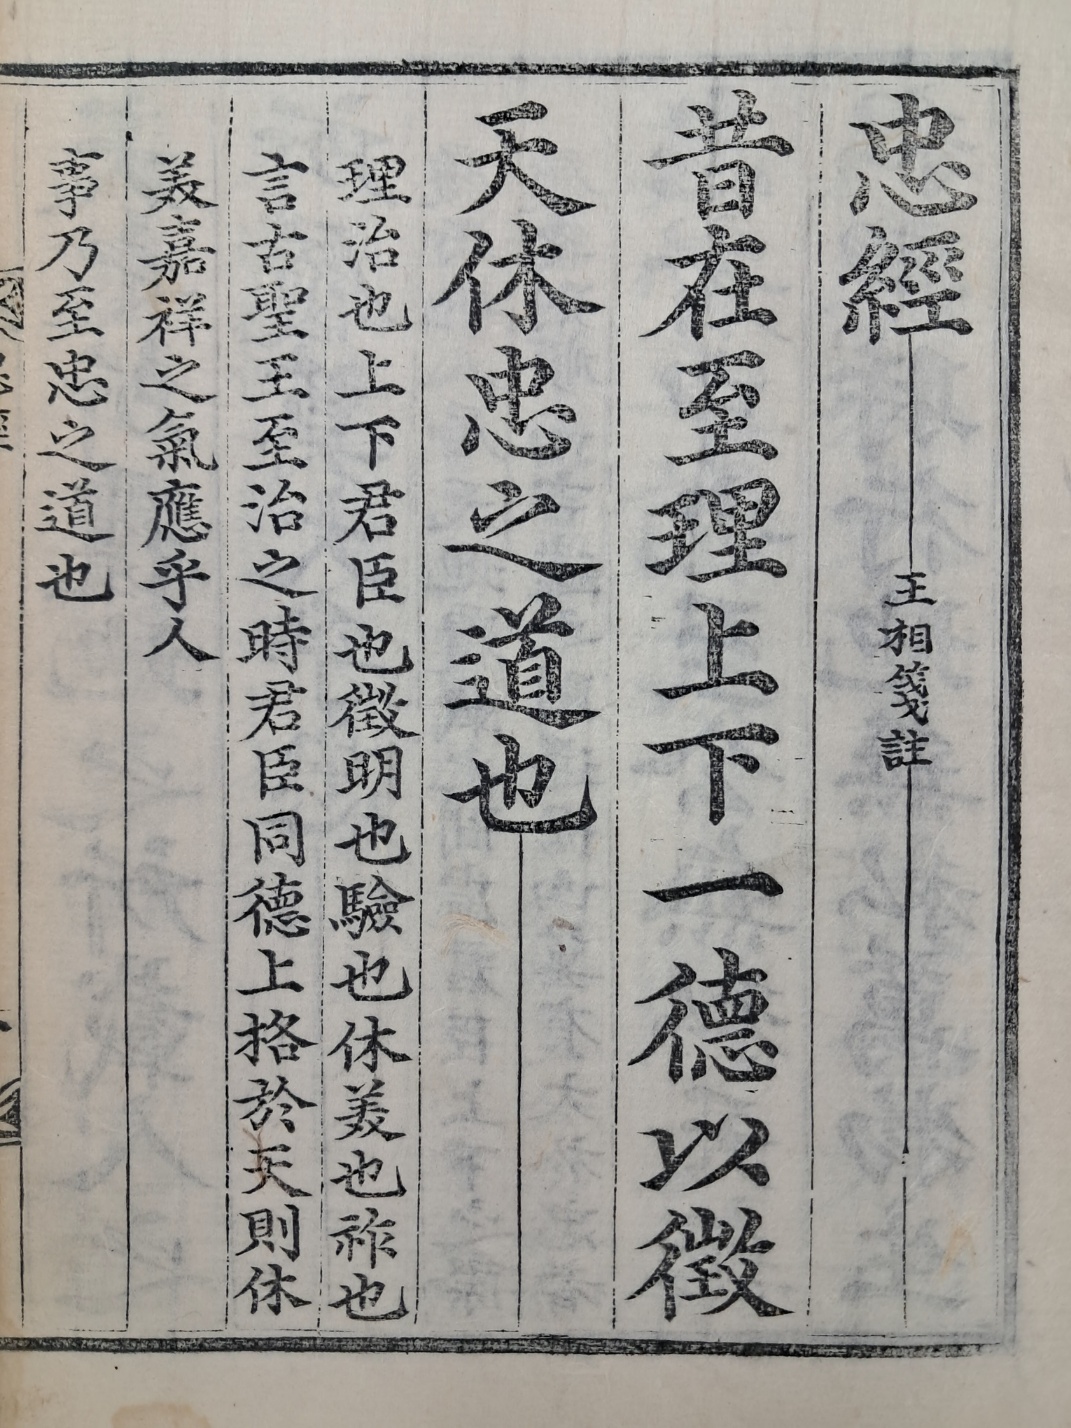 忠經
王相箋註
昔在至理上下一德以徵
天休忠之道也
理治也上下君臣也徵明也驗也休美也祚也
言古聖王至治之時君臣同德上格於天則休
美嘉祥之氣應乎人
事乃至忠之道也